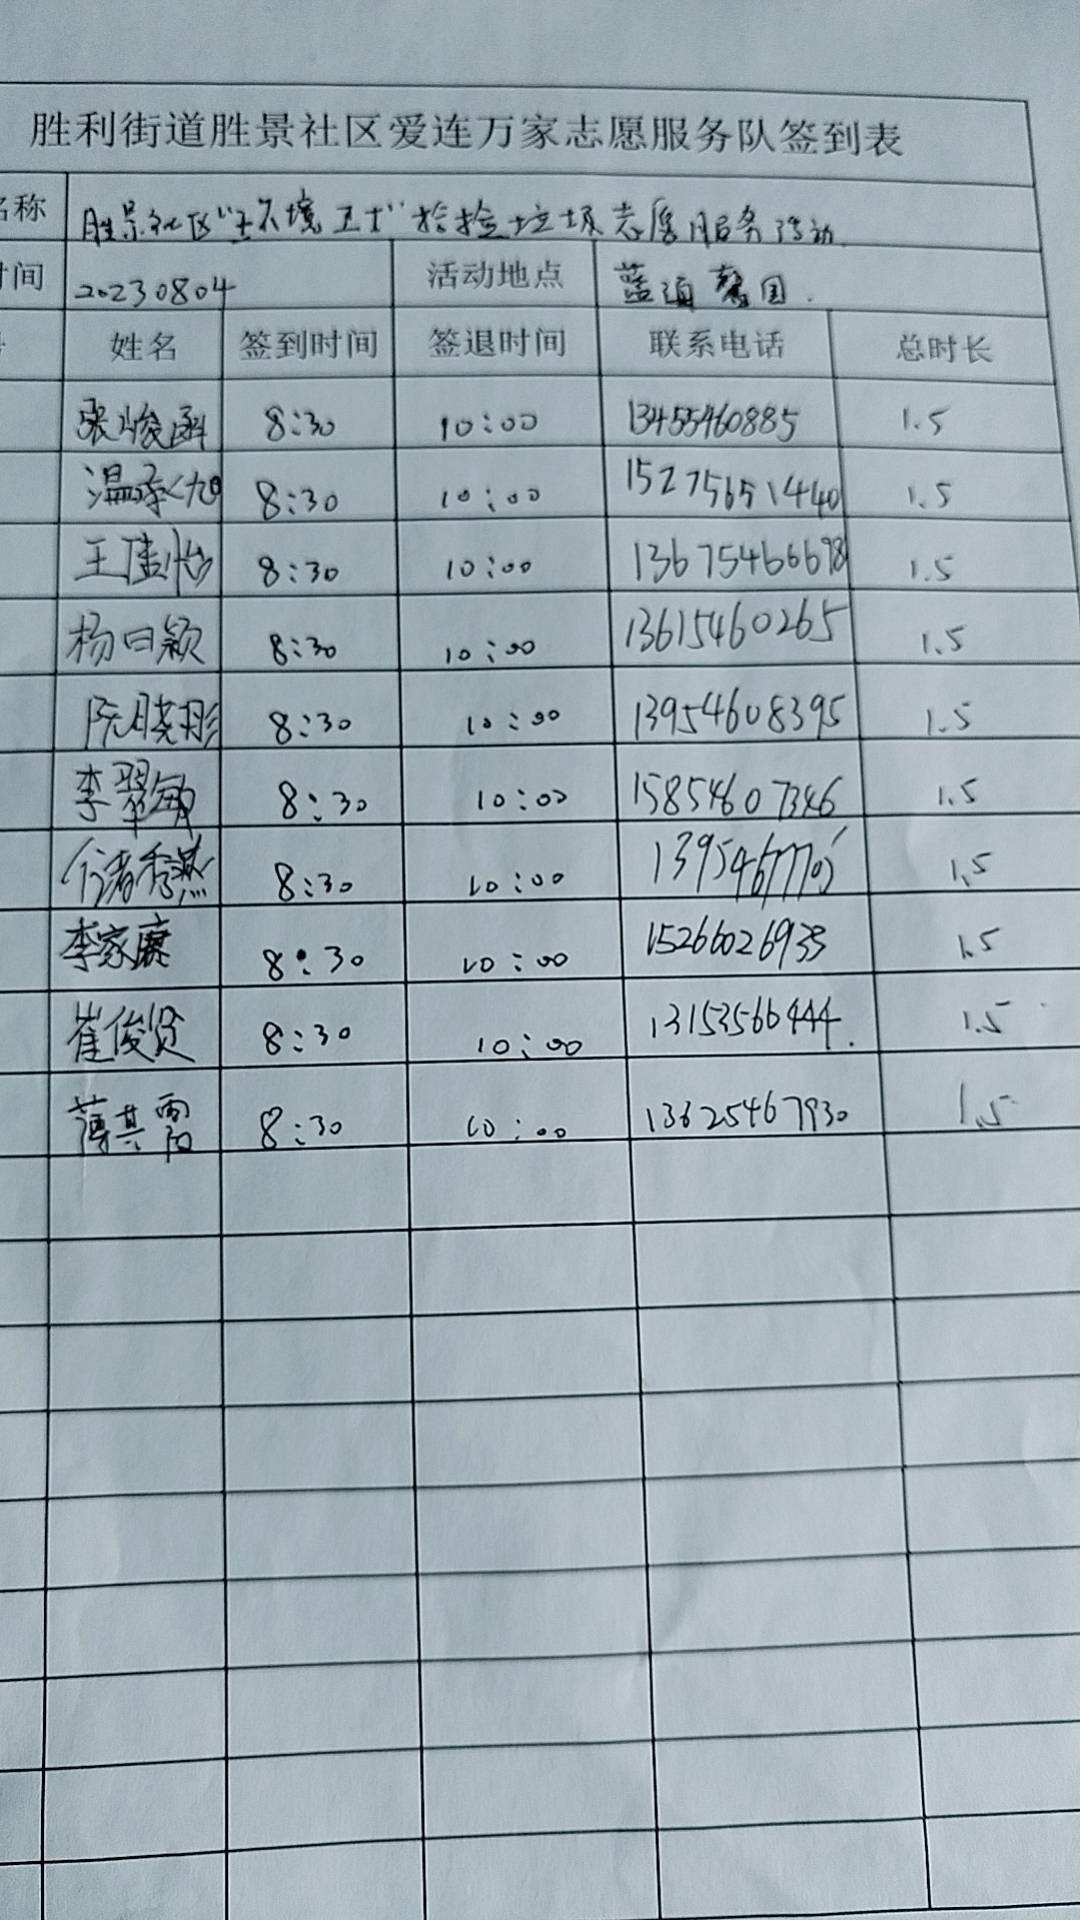 胜利街道胜景社区爱连万家志愿服务队签到表
名称 胜景社区"环境卫士"捡拾垃圾志愿服务活动
时间 20230804 活动地点 蓝 馨园.
姓名 签到时间 签退时间 联系电话 总时长
张峻函 8:30 10:00 13455460885 1.5
温承旭 8:30 10:00 15275651440 1.5
王佳怡 8:30 10:00 13675466698 1.5
杨曰颖 8:30 10:00 13615460265 1.5
阮晓彤 8:30 10:00 13954608395 1.5
李翠敏 8:30 10:00 15854607346 1.5
秀燕 8:30 10:00 1.5
李家赓 8:30 10:00 15266026933 1.5
崔俊贤 8:30 10:00 13153566444. 1.5
薄其霞 8:30 10:00 13625467930 1.5